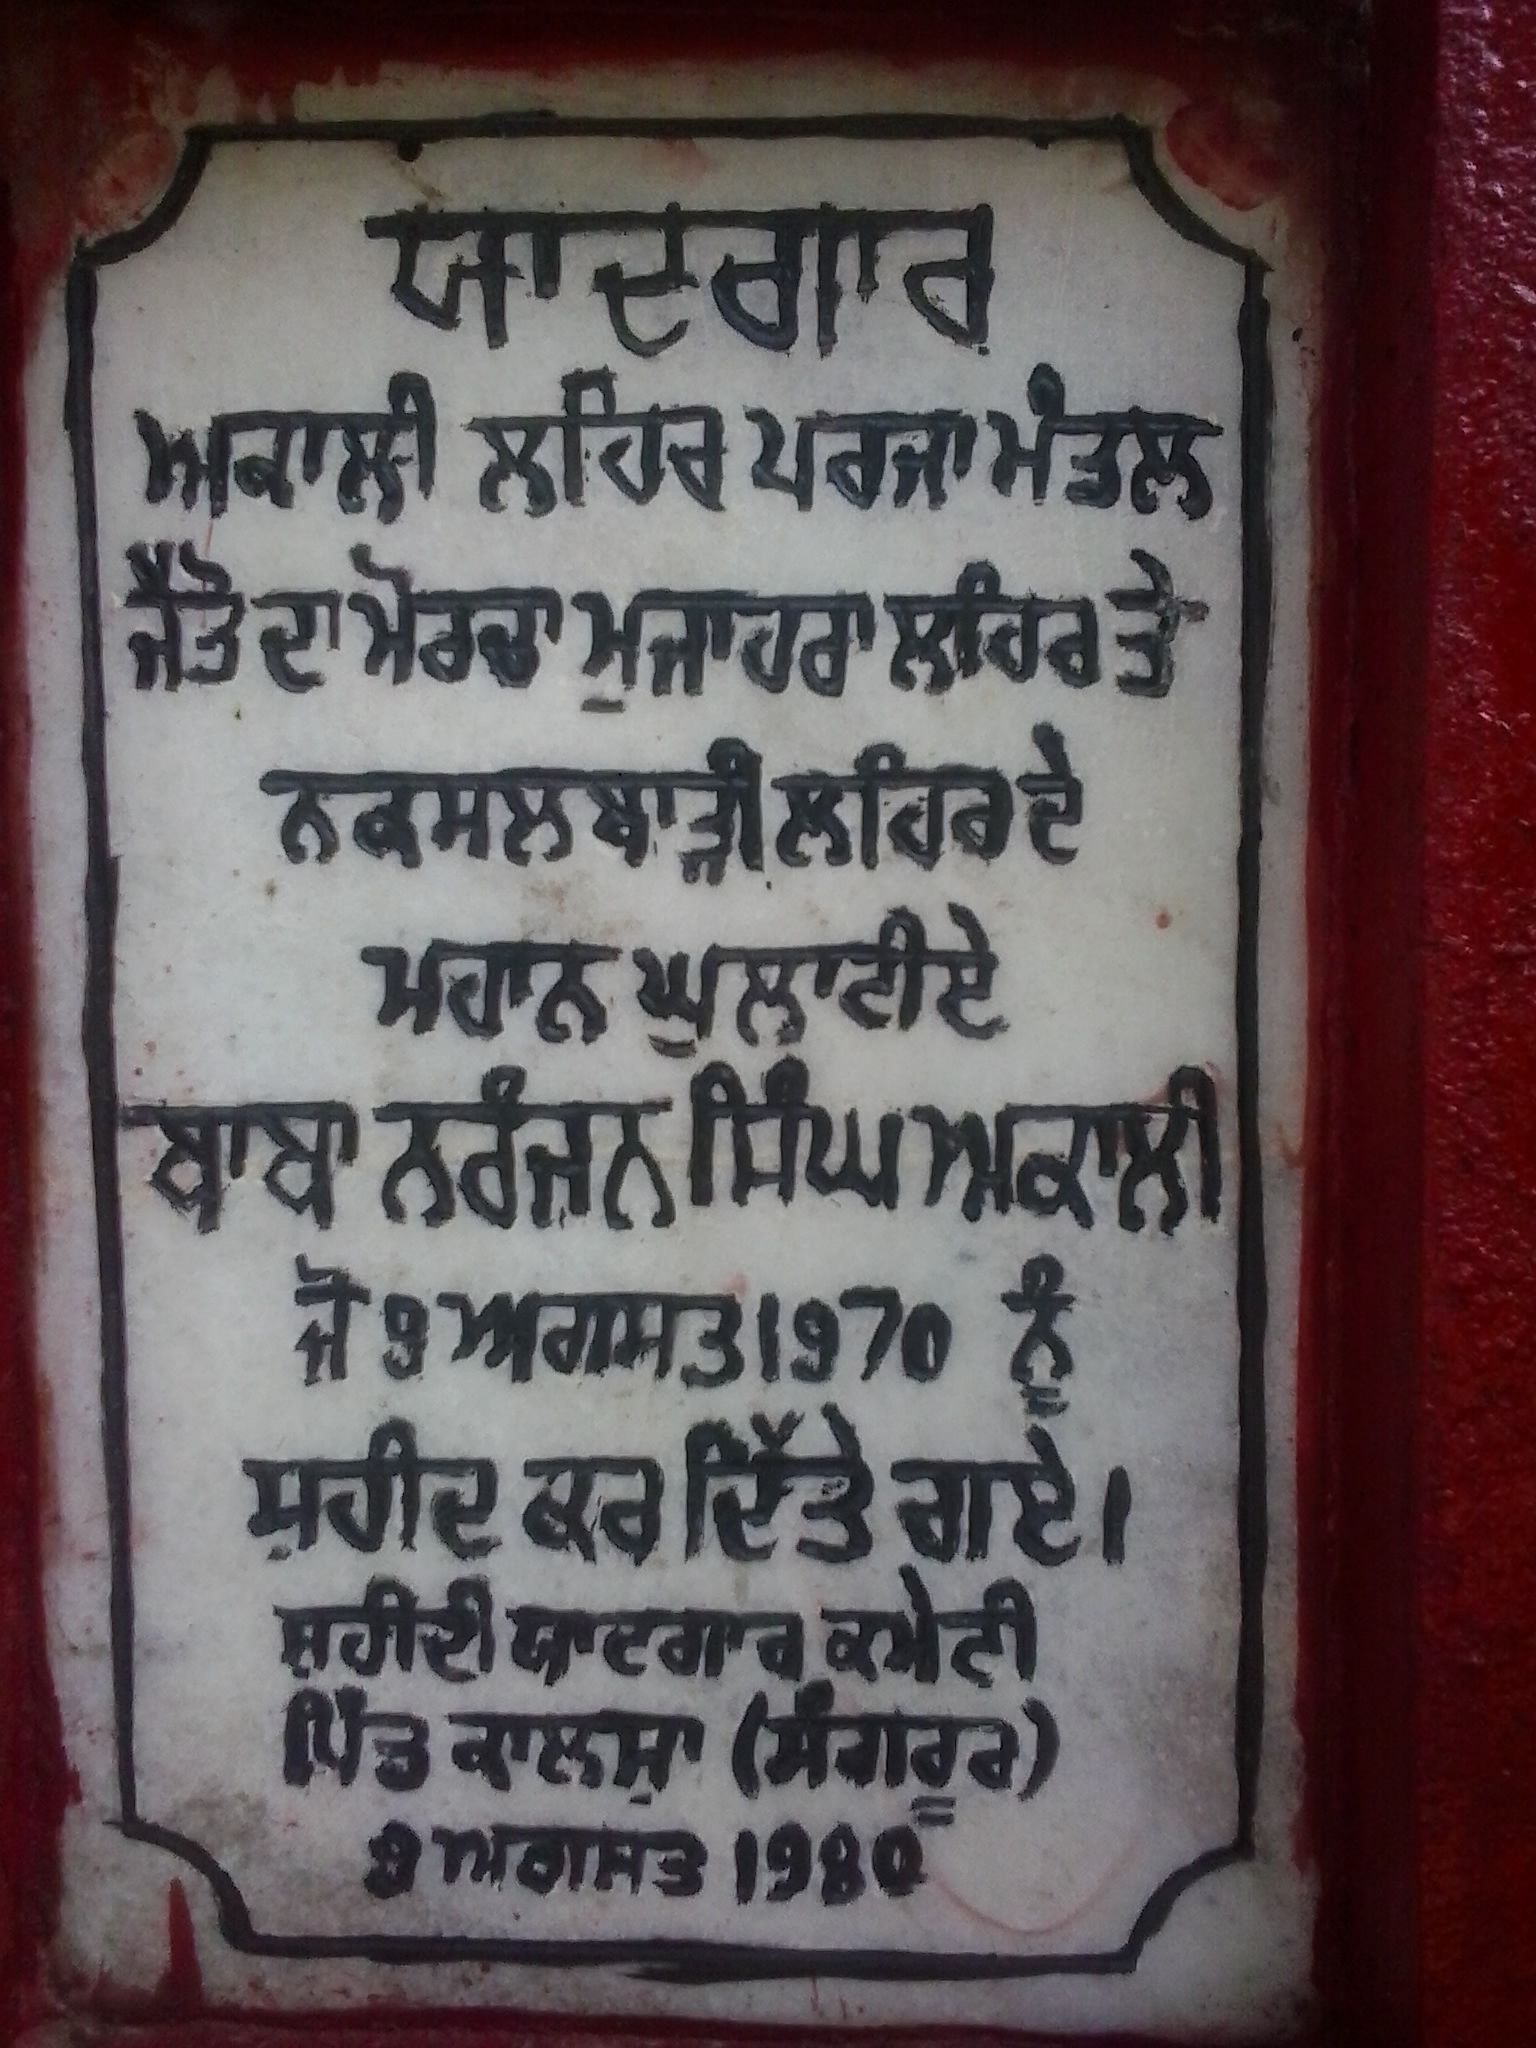 ਯਾਦਗਾਰ
ਅਕਾਲੀ ਲਹਿਰ ਪਰਜਾ ਮੰਡਲ
ਜੈਤੋ ਦਾ ਮੋਰਚਾ ਮੁਜਾਹਰਾ ਲਹਿਰ ਤੇ
ਨਕਸਲਬਾੜੀ ਲਹਿਰ ਦੇ
ਮਹਾਨ ਘੁਲਾਟੀਏ
ਬਾਬਾ ਨਰੰਜਨ ਸਿੰਘ ਅਕਾਲੀ
ਜੋ 9 ਅਗਸਤ 1970 ਨੂੰ
ਸ਼ਹੀਦ ਕਰ ਦਿੱਤੇ ਗਏ।
ਸ਼ਹੀਦੀ ਯਾਦਗਾਰ ਕਮੇਟੀ
ਪਿੰਡ ਕਾਲਸ਼ਾ (ਸੰਗਰੂਰ)
9 ਅਗਸਤ 1980